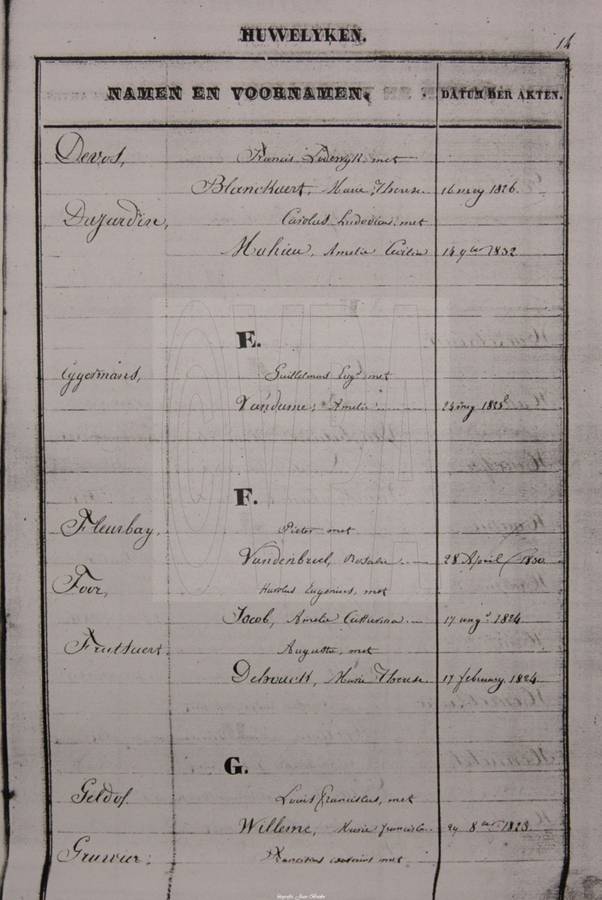 HUWELYKEN.
14
NAMEN EN VOORNAMEN. DATUM DER AKTEN.
Devos, Francis Lodewyk met
Blanckaert, Marie Therese 16 mey 1826.
Dujardin, Carolus Ludovicus, met
Mahieu, Amelie Cecilia 14 9ber 1832
E.
Eggermans, Guillelmus Eug. met
Vandame, Amelie
F.
Fleurbay, Pieter met
Vandenbreel, Rosalie 28 April 1830
Foor, Karolus Eugenius, met
Jacob, Amelie Catharina 17 augt 1824
Frutsaert. Auguste, met
Marie Therese 17 february 1824
G.
Geldof. Louis Franciscus, met
Willeme, Marie Francisca 29 8ber 1823
Gruwier: Franciscus met